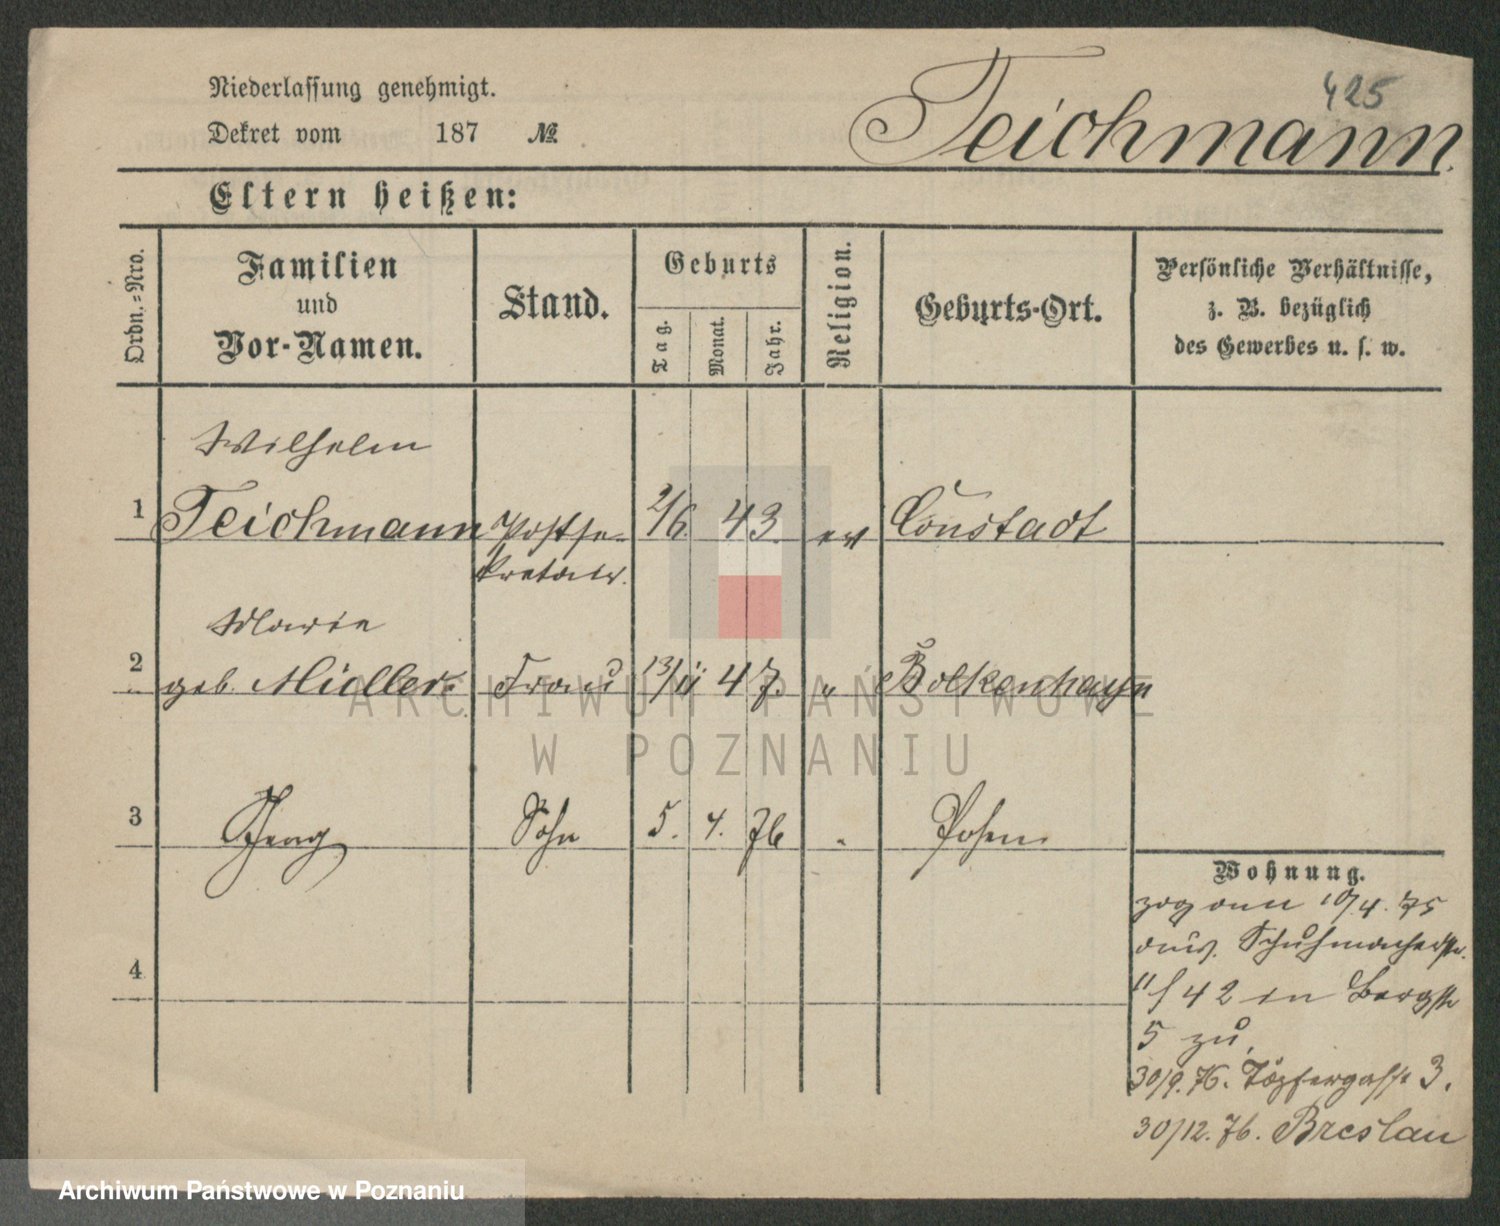 Niederlassung genehmigt.
425
Dekret vom 187 №
Teichmann.
Eltern heißen:
Ordn.-Nro.
Familien
und
Vor-Namen.
Stand.
Geburts
Tag.
Monat.
Jahr.
Religion.
Geburts-Ort.
Persönliche Verhältnisse,
z. B. bezüglich
des Gewerbes u. s. w.
Wilhelm
1 Teichmann Postse- 2/6. 43. ev Constadt
kretair.
Marie
2 geb. Midler Frau 13/11 47. " Bolkenhayn
3 Georg Sohn 5. 4. 76 " Posen
Wohnung.
zog am 10/4. 75
aus. Schuhmacherstr.
11/42 in Bergstr
4
5 zu,
30/9. 76. Töpfergasse 3.
30/12. 76. Breslau
ARCHIWUM PAŃSTWOWE
W POZNANIU
Archiwum Państwowe w Poznaniu